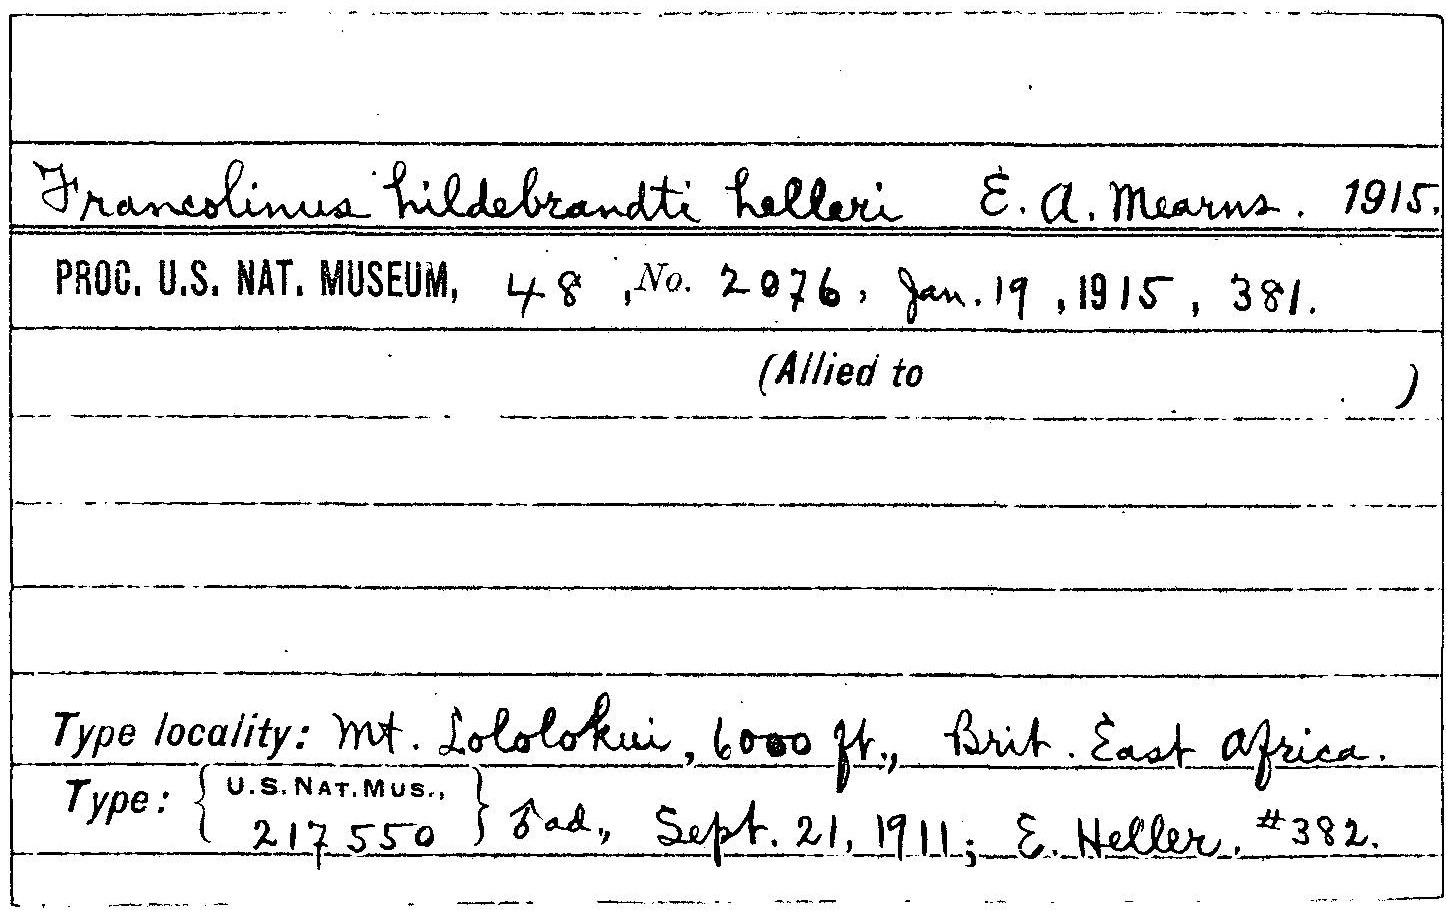 Francolinus hildebrandti helleri E. A. Mearns. 1915.
PROC. U.S. NAT. MUSEUM, 48, No. 2076, Jan. 19, 1915, 381.
(Allied to )
Type locality: Mt. Lololokui, 6000 ft., Brit. East Africa.
Type: { U.S. NAT. MUS., 217550 } ♂ ad., Sept. 21, 1911; E. Heller. #382.